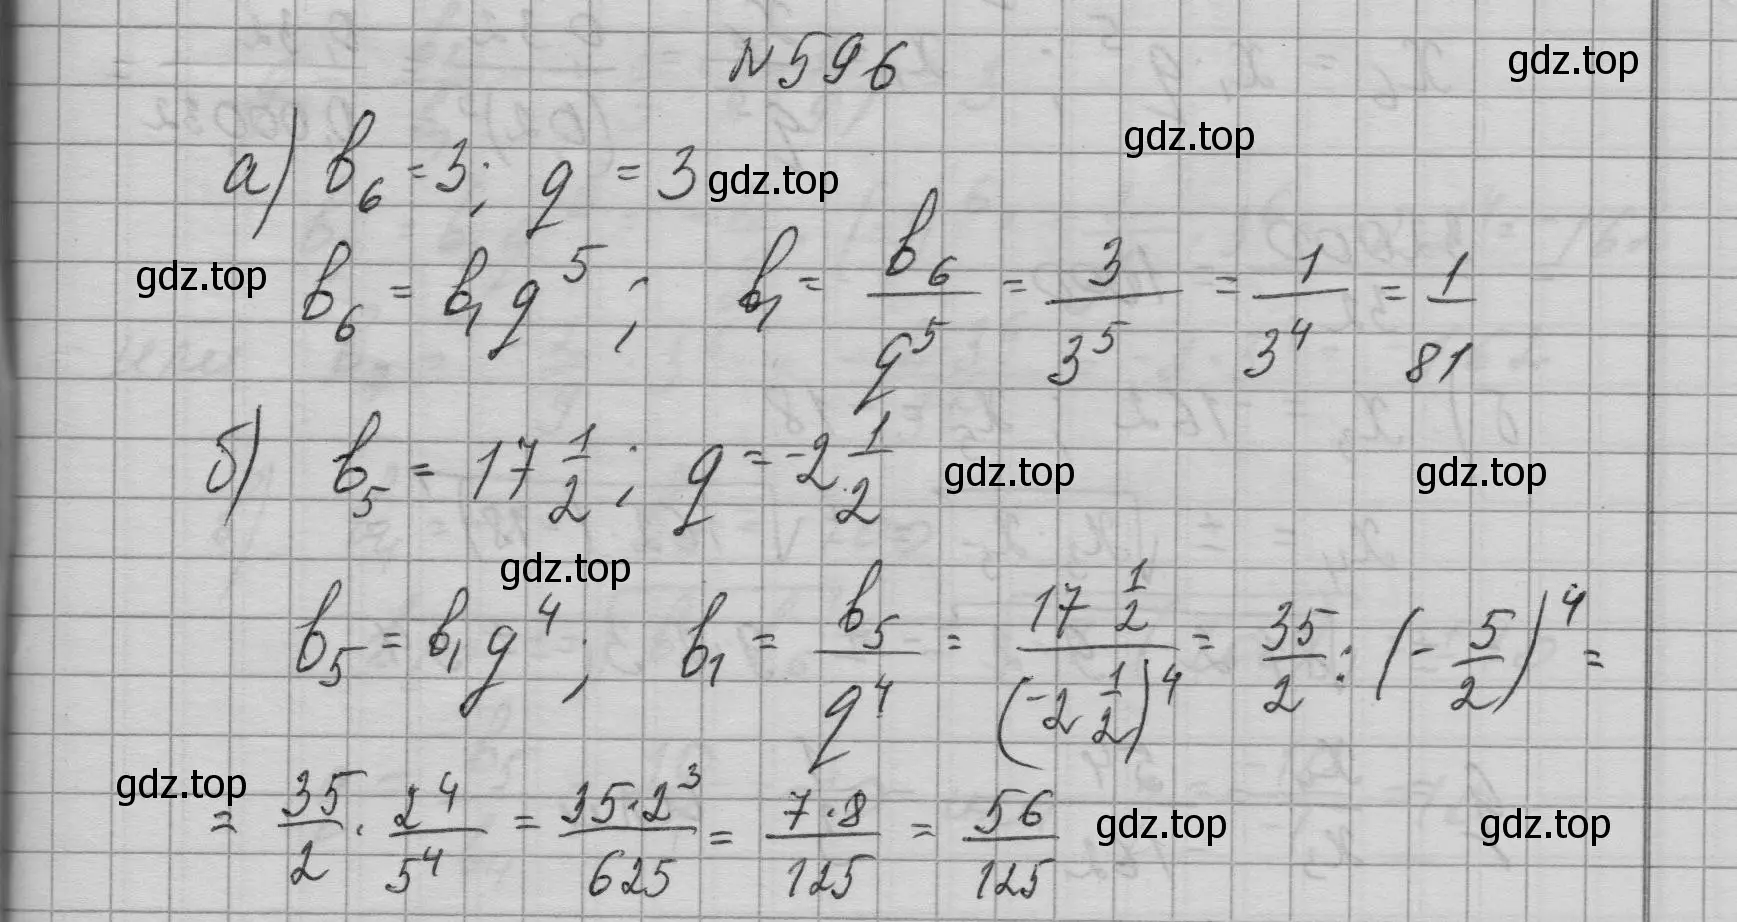 №596 gdz.top
gdz.top
а) b₆ = 3; q = 3 gdz.top
gdz.top b₆ = b₁ q⁵; b₁ = b₆/q⁵ = 3/3⁵ = 1/3⁴ = 1/81
б) b₅ = 17 1/2; q = -2 1/2 gdz.top gdz.top
gdz.top
b₅ = b₁ q⁴; b₁ = b₅/q⁴ = 17 1/2/(-2 1/2)⁴ = 35/2 : (-5/2)⁴ =
gdz.top
= 35/2 · 2⁴/5⁴ = 35·2³/625 = 7·8/125 = 56/125 gdz.top gdz.top